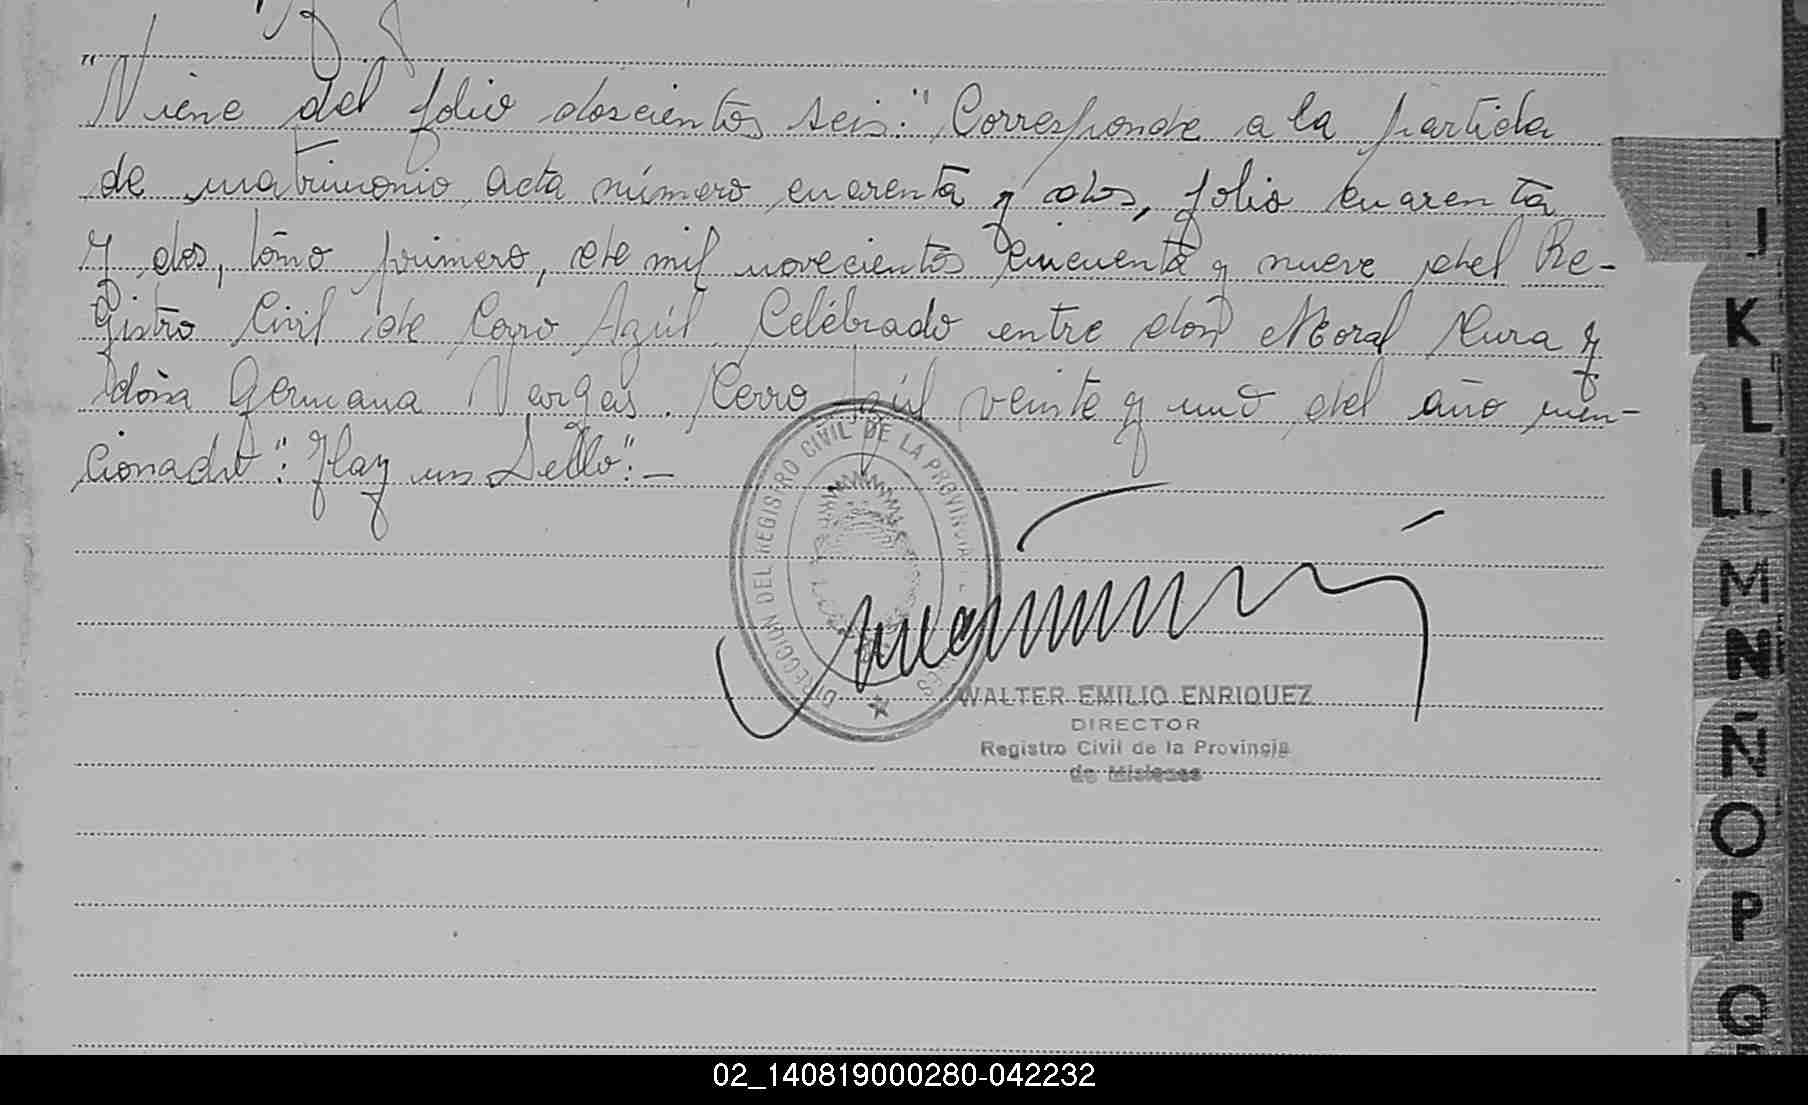 "Viene del folio doscientos seis." Corresponde a la partida
de matrimonio acta número cuarenta y dos, folio cuarenta
y dos, tomo primero, de mil novecientos cincuenta y nueve del Re-
gistro Civil de Cerro Azúl. Celébrado entre don Moral Rura y
doña Germana Vargas. Cerro Azúl veinte y uno del año men-
cionado": Hay un Sello":-
DIRECCION DEL REGISTRO CIVIL DE LA PROVINCIA
WALTER EMILIO ENRIQUEZ
DIRECTOR
Registro Civil de la Provincia
de Misiones
J
K
L
LL
M
N
Ñ
O
P
Q
02_140819000280-042232